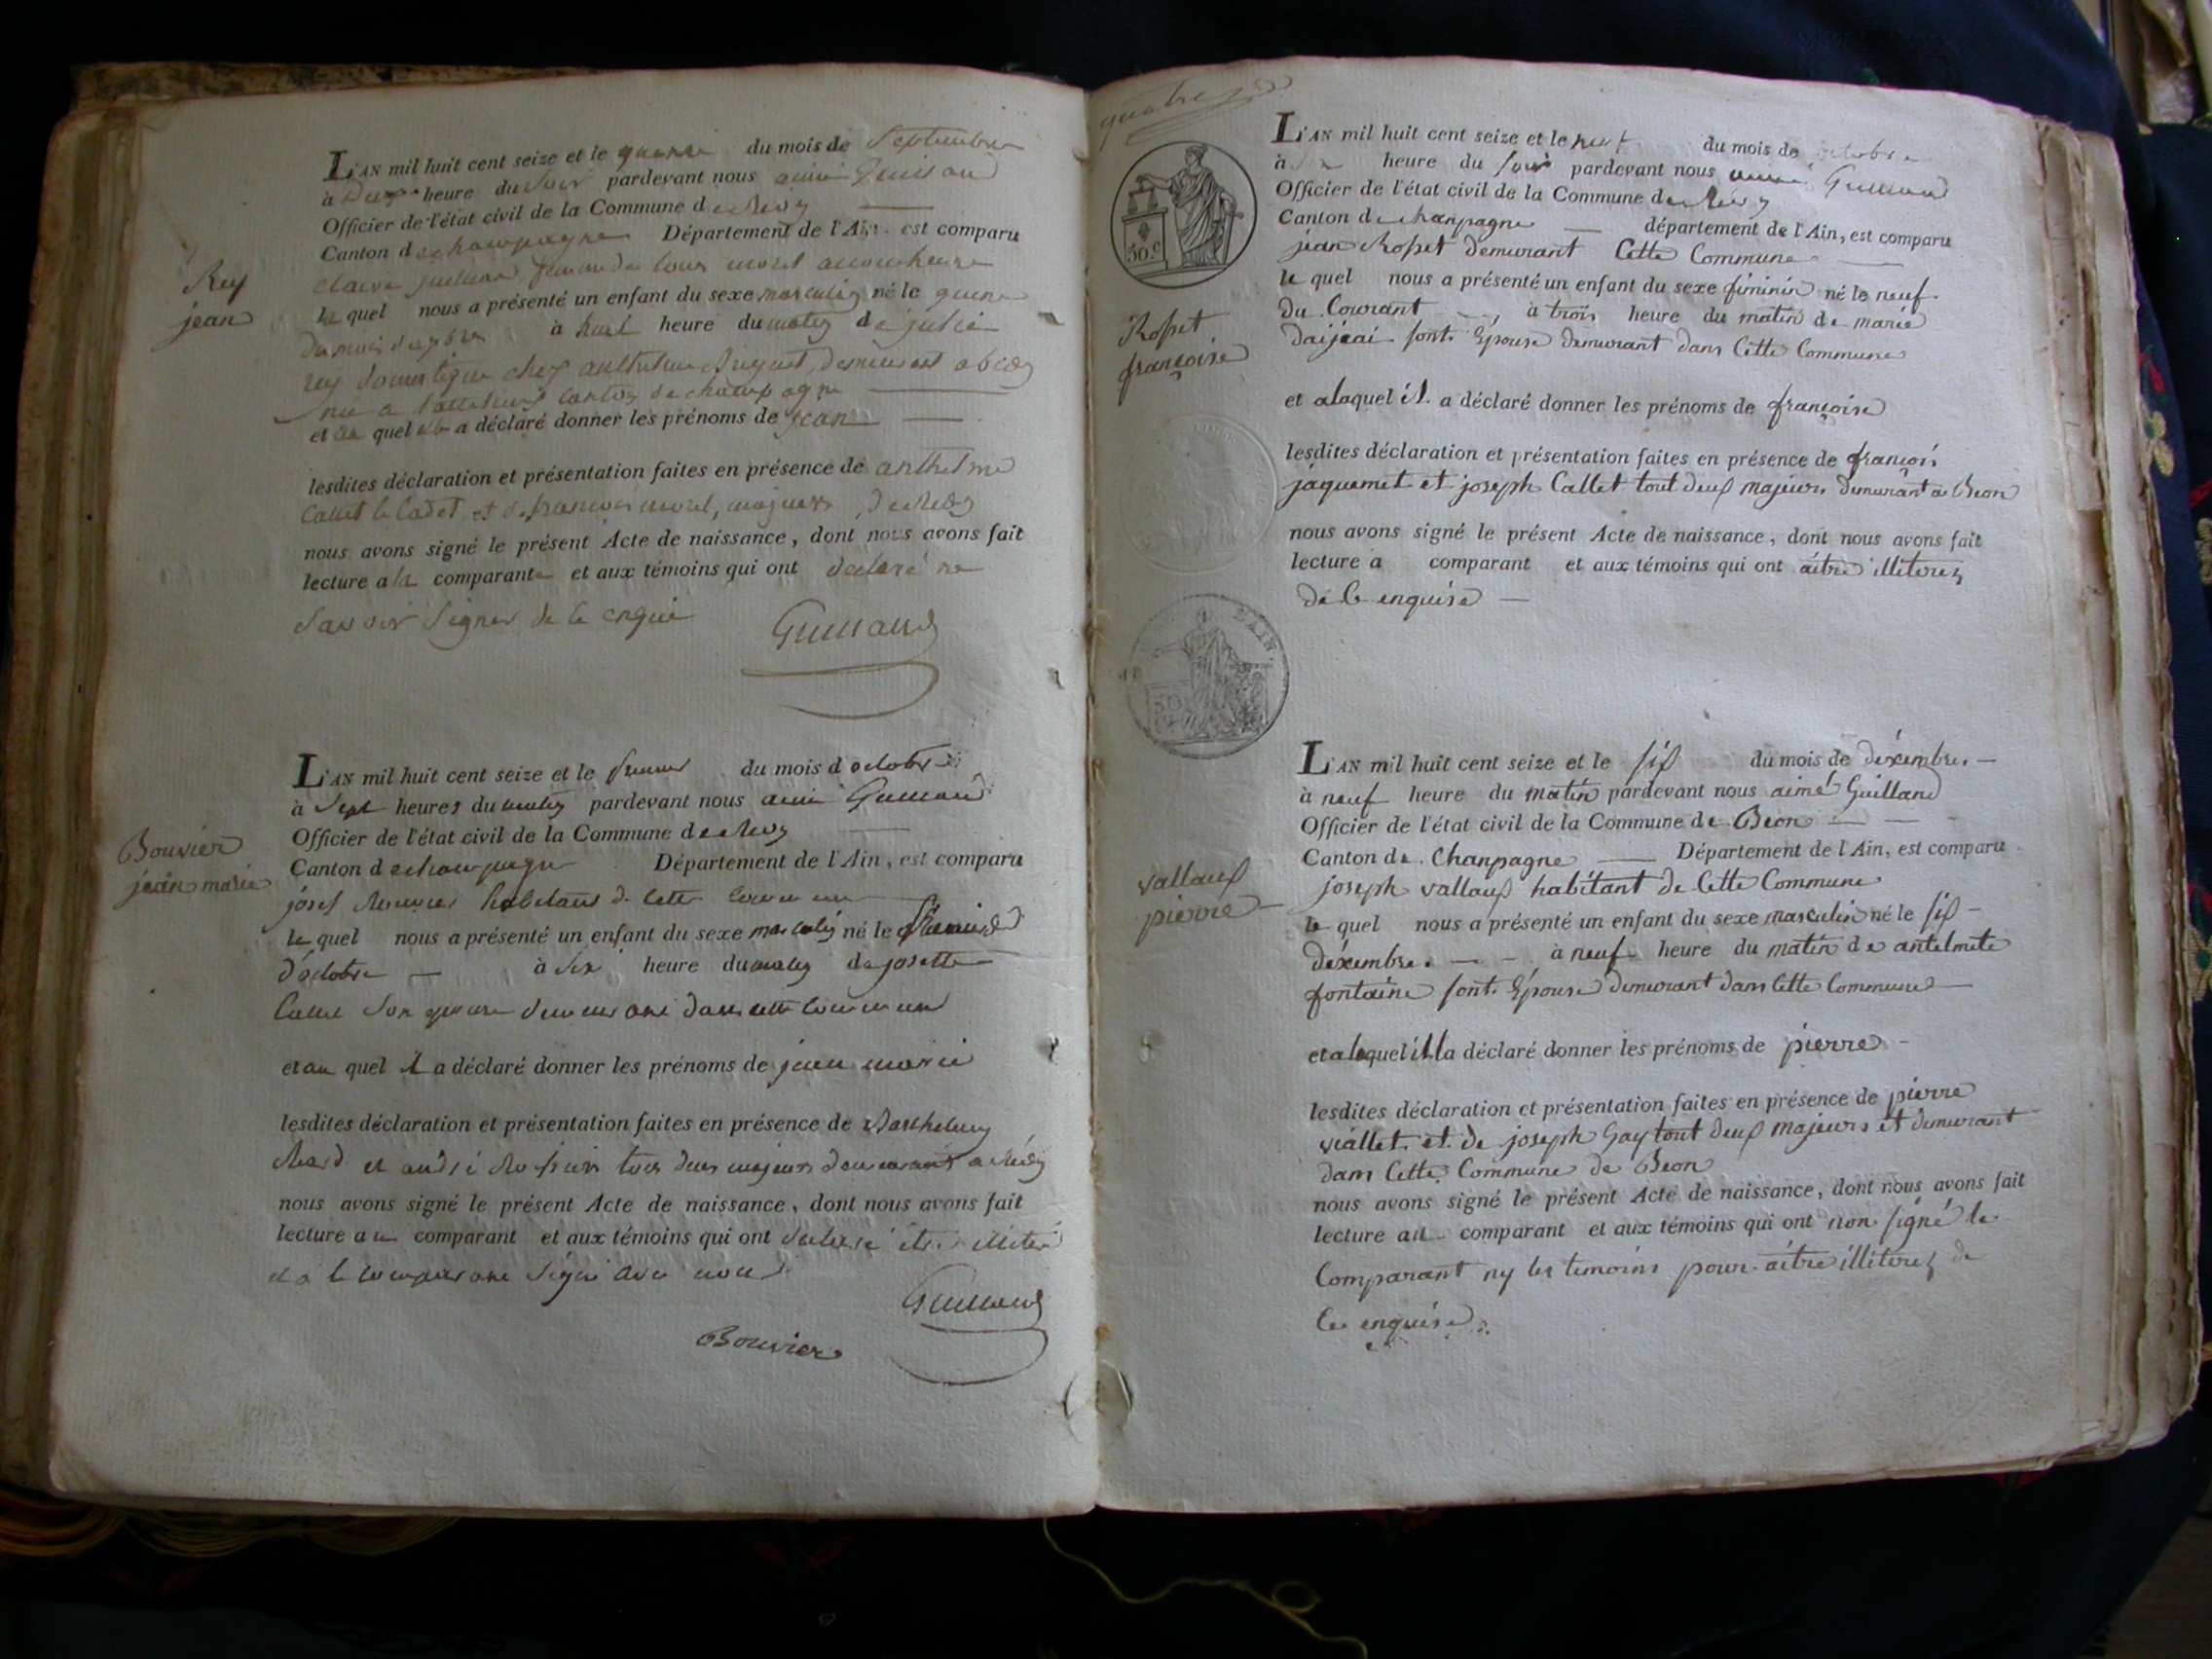 L'AN mil huit cent seize et le quinze du mois de Septembre
à heure du Soir pardevant nous aimé Guilland
Officier de l'état civil de la Commune de
Canton de champagne Département de l'Ain, est comparu
Rey
jean
claire femme de louis morel
le quel nous a présenté un enfant du sexe masculin né le quinze
du mois à huit heure du matin de julie
rey domestique chez anthelme demeurant a
née a canton de champagne
et au quel a déclaré donner les prénoms de jean
lesdites déclaration et présentation faites en présence de anthelme
Callet le Cadet et de françois morel, majeurs, de
nous avons signé le présent Acte de naissance, dont nous avons fait
lecture a la comparante et aux témoins qui ont déclaré ne
Savoir Signer de ce enquis
Guilland
L'AN mil huit cent seize et le premier du mois d octobre
à Sept heures du matin pardevant nous aimé Guilland
Officier de l'état civil de la Commune de
Canton de champagne Département de l'Ain, est comparu
Bouvier
jean marie
josef Bouvier habitant de cette commune
le quel nous a présenté un enfant du sexe masculin né le premier
d'octobre à Six heure du matin de josette
Callet Son epouse demeurant dans cette commune
et au quel il a déclaré donner les prénoms de jean marie
lesdites déclaration et présentation faites en présence de Barthelemy
et andré tous deux majeurs demeurant a
nous avons signé le présent Acte de naissance, dont nous avons fait
lecture au comparant et aux témoins qui ont déclaré
et a le comparant Signé avec nous
Guilland
Bouvier
quatre
L'AN mil huit cent seize et le neuf du mois de octobre
à heure du soir pardevant nous aimé Guilland
Officier de l'état civil de la Commune de
Canton de chanpagne département de l'Ain, est comparu
50.c
jean Rosset demurant Cette Commune
le quel nous a présenté un enfant du sexe féminin né le neuf
du Courant, à trois heure du matin de marie
Rosset
françoise
sont Epouse demurant dans Cette Commune
et alaquel il a déclaré donner les prénoms de françoise
lesdites déclaration et présentation faites en présence de françois
jaquemet et joseph Callet tout deux majeurs demurant a Beon
nous avons signé le présent Acte de naissance, dont nous avons fait
lecture a comparant et aux témoins qui ont aitre illiterez
de ce enquise
L'AN mil huit cent seize et le six du mois de déxembre
à neuf heure du matin pardevant nous aimé Guilland
Officier de l'état civil de la Commune de Beon
Canton de Chanpagne Département de l'Ain, est comparu
vallaux
pierre
joseph vallaux habitant de Cette Commune
le quel nous a présenté un enfant du sexe masculin né le six
déxembre à neuf heure du matin de antelmete
fontaine sont Epouse demurant dans Cette Commune
et alequel illa déclaré donner les prénoms de pierre
lesdites déclaration et présentation faites en présence de pierre
viallet et de joseph Gay tout deux majeurs et demurant
dans Cette Commune de Beon
nous avons signé le présent Acte de naissance, dont nous avons fait
lecture au comparant et aux témoins qui ont non signé le
Comparant ny les temoins pour aitre illiterez de
Ce enquise